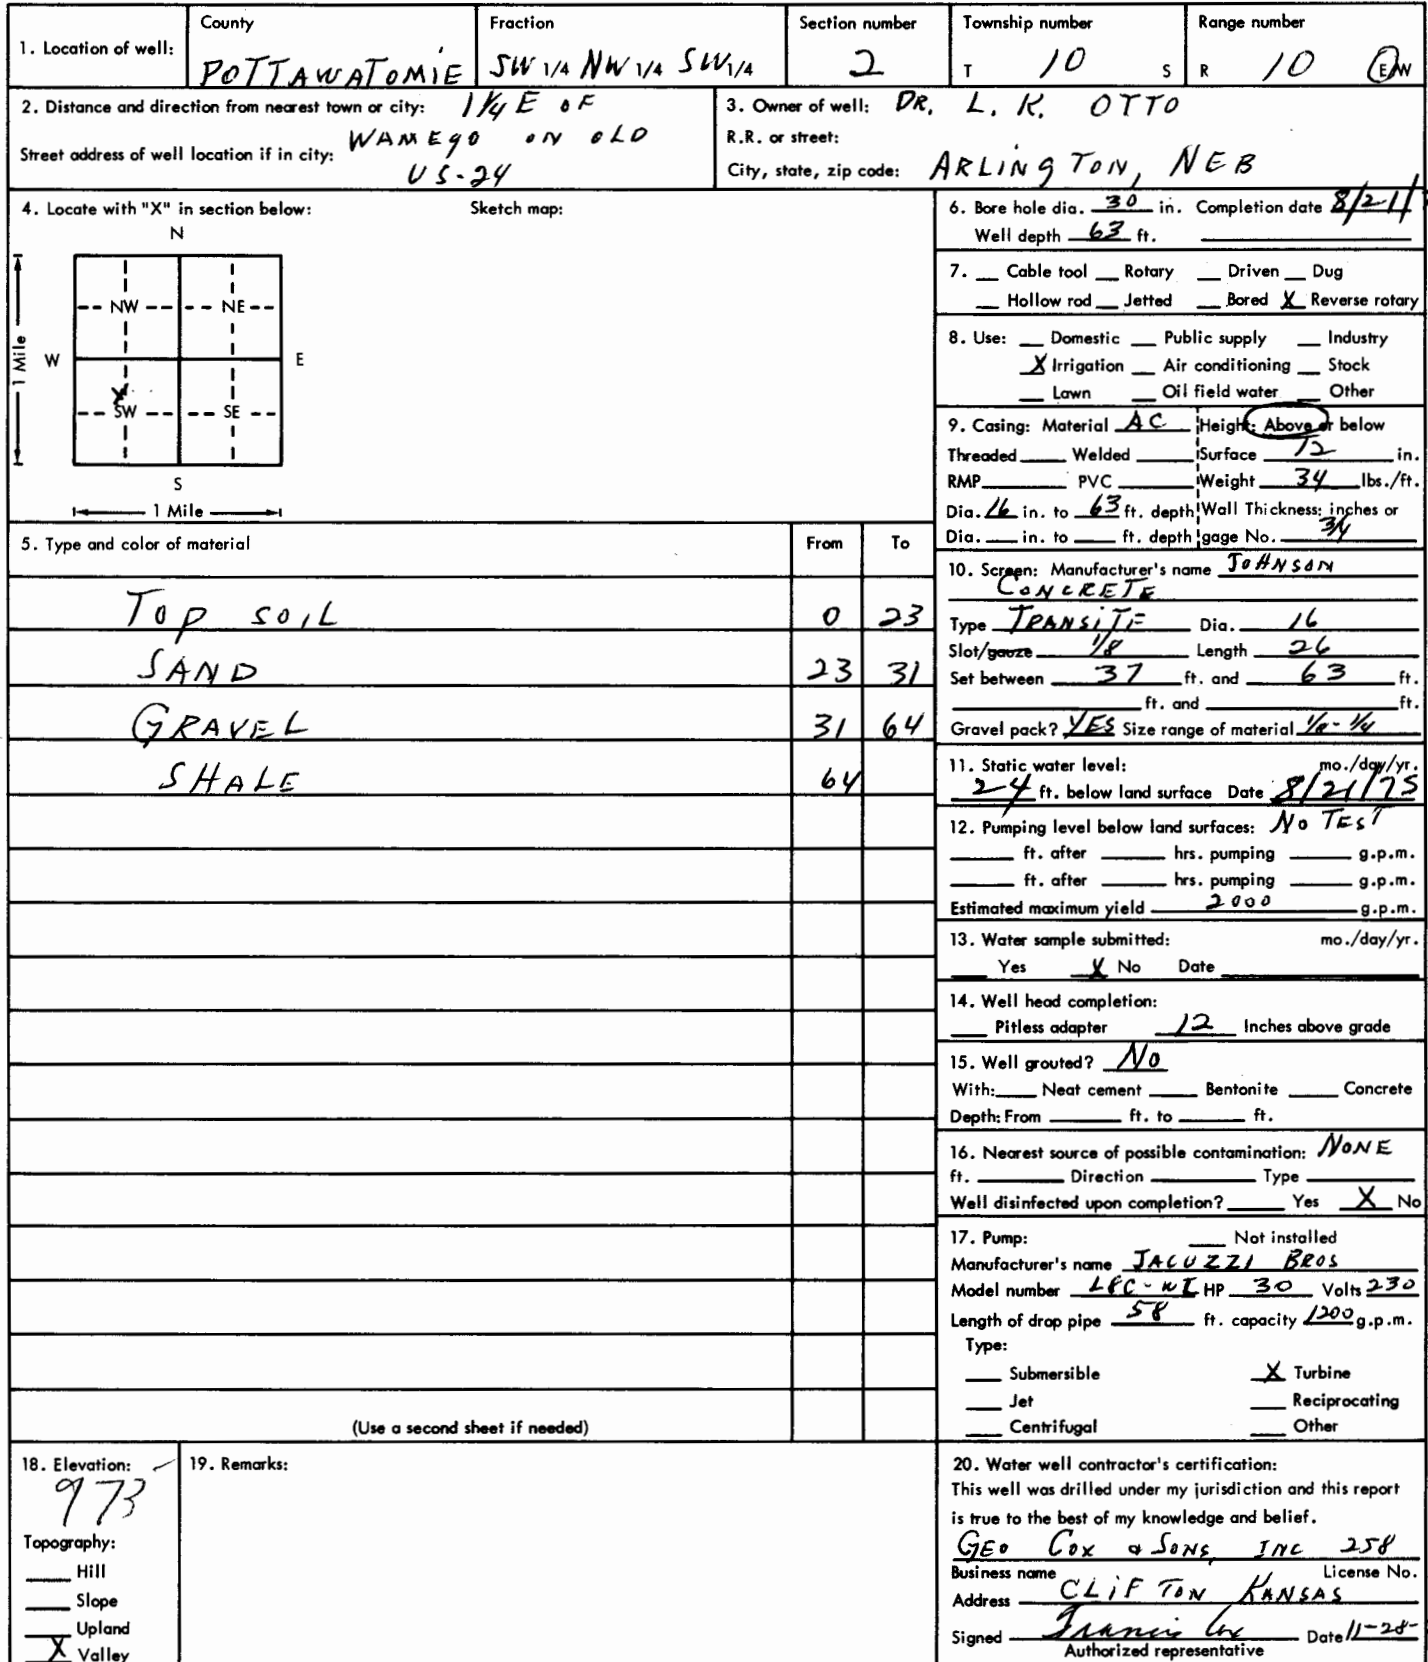 1. Location of well:
County
POTTAWATOMIE
Fraction
SW 1/4 NW 1/4 SW 1/4
Section number
2
Township number
T 10 S
Range number
R 10 E/W
2. Distance and direction from nearest town or city: 1 1/4 E OF
WAMEGO ON OLD
Street address of well location if in city:
US-24
3. Owner of well: DR. L. K. OTTO
R.R. or street:
City, state, zip code: ARLINGTON, NEB
4. Locate with "X" in section below:
Sketch map:
N
NW NE
W E
1 Mile
X
SW SE
S
1 Mile
5. Type and color of material From To
TOP SOIL 0 23
SAND 23 31
GRAVEL 31 64
SHALE 64
(Use a second sheet if needed)
6. Bore hole dia. 30 in. Completion date 8/21/
Well depth 63 ft.
7. __ Cable tool __ Rotary __ Driven __ Dug
__ Hollow rod __ Jetted __ Bored X Reverse rotary
8. Use: __ Domestic __ Public supply __ Industry
X Irrigation __ Air conditioning __ Stock
__ Lawn __ Oil field water __ Other
9. Casing: Material AC Height: Above or below
Threaded ____ Welded ____ Surface 12 in.
RMP ____ PVC ____ Weight 34 lbs./ft.
Dia. 16 in. to 63 ft. depth Wall Thickness: inches or
Dia. __ in. to __ ft. depth gage No. 3/4
10. Screen: Manufacturer's name JOHNSON
CONCRETE
Type TRANSITE Dia. 16
Slot/gauze 1/8 Length 26
Set between 37 ft. and 63 ft.
____ ft. and ____ ft.
Gravel pack? YES Size range of material 1/8 - 1/4
11. Static water level: mo./day/yr.
24 ft. below land surface Date 8/21/75
12. Pumping level below land surfaces: NO TEST
____ ft. after ____ hrs. pumping ____ g.p.m.
____ ft. after ____ hrs. pumping ____ g.p.m.
Estimated maximum yield 2000 g.p.m.
13. Water sample submitted: mo./day/yr.
__ Yes X No Date ____
14. Well head completion:
__ Pitless adapter 12 Inches above grade
15. Well grouted? No
With: __ Neat cement __ Bentonite __ Concrete
Depth: From ____ ft. to ____ ft.
16. Nearest source of possible contamination: NONE
ft. ____ Direction ____ Type ____
Well disinfected upon completion? __ Yes X No
17. Pump: __ Not installed
Manufacturer's name JACUZZI BROS
Model number HP 30 Volts 230
Length of drop pipe 58 ft. capacity 1200 g.p.m.
Type:
__ Submersible X Turbine
__ Jet __ Reciprocating
__ Centrifugal __ Other
18. Elevation:
973
Topography:
__ Hill
__ Slope
__ Upland
X Valley
19. Remarks:
20. Water well contractor's certification:
This well was drilled under my jurisdiction and this report
is true to the best of my knowledge and belief.
GEO COX & SONS, INC 258
Business name License No.
Address CLIFTON KANSAS
Signed Francis Cox Date 11-28-
Authorized representative